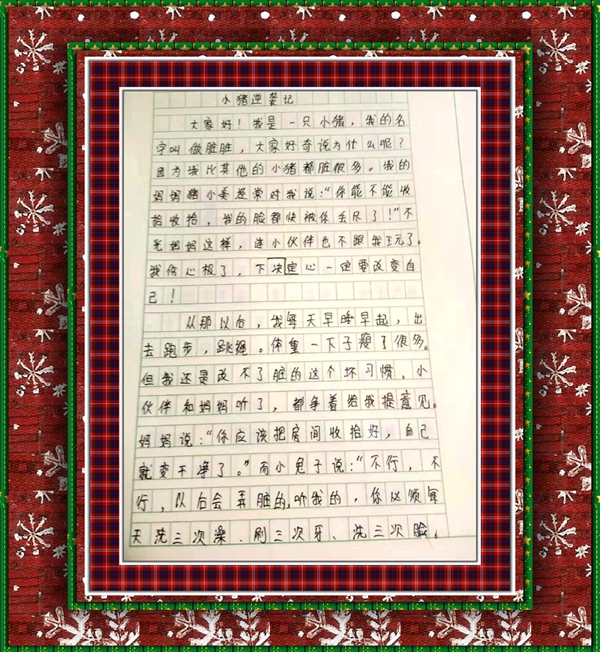 小猪逆袭记
大家好！我是一只小猪，我的名
字叫做脏脏，大家好奇说为什么呢？
因为我比其他的小猪都脏很多。我的
妈妈猪小姜经常对我说：“你能不能收
拾收拾，我的脸都快被你丢尽了！”不
光妈妈这样，连小伙伴也不跟我玩了。
我伤心极了，下决定心一定要改变自
己！
从那以后，我每天早睡早起，出
去跑步，跳绳。体重一下子瘦了很多。
但我还是改不了脏的这个坏习惯。小
伙伴和妈妈听了，都争着给我提意见。
妈妈说：“你应该把房间收拾好，自己
就变干净了。”而小兔子说：“不行，不
行，以后会弄脏的，听我的，你必须每
天洗三次澡、刷三次牙、洗三次脸。